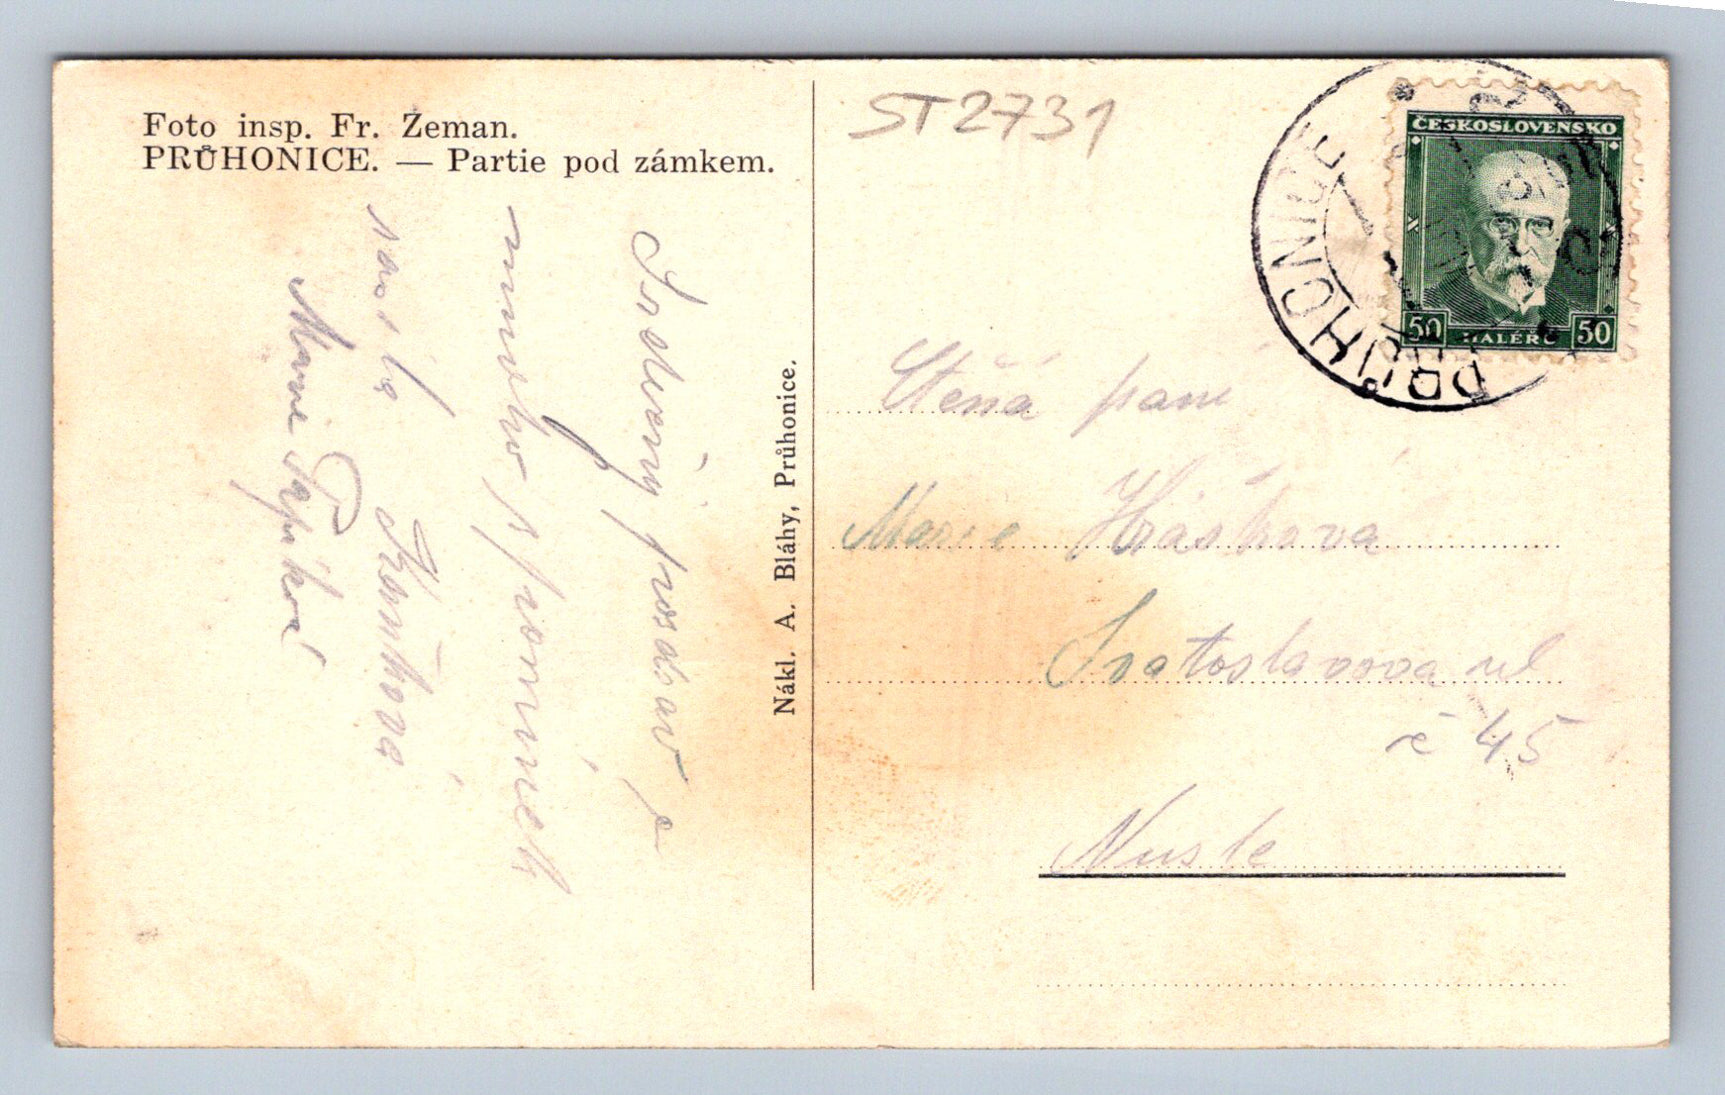 Foto insp. Fr. Zeman.
PRŮHONICE. — Partie pod zámkem.
Srdečný pozdrav a
mnoho vzpomínek
zasílá
Marie
Nákl. A. Bláhy, Průhonice.
ST2731
ČESKOSLOVENSKO
50 HALÉŘŮ 50
PRŮHONICE
Ctěná paní
Marie Hrášková
Svatoslavova ul
č 45
Nusle